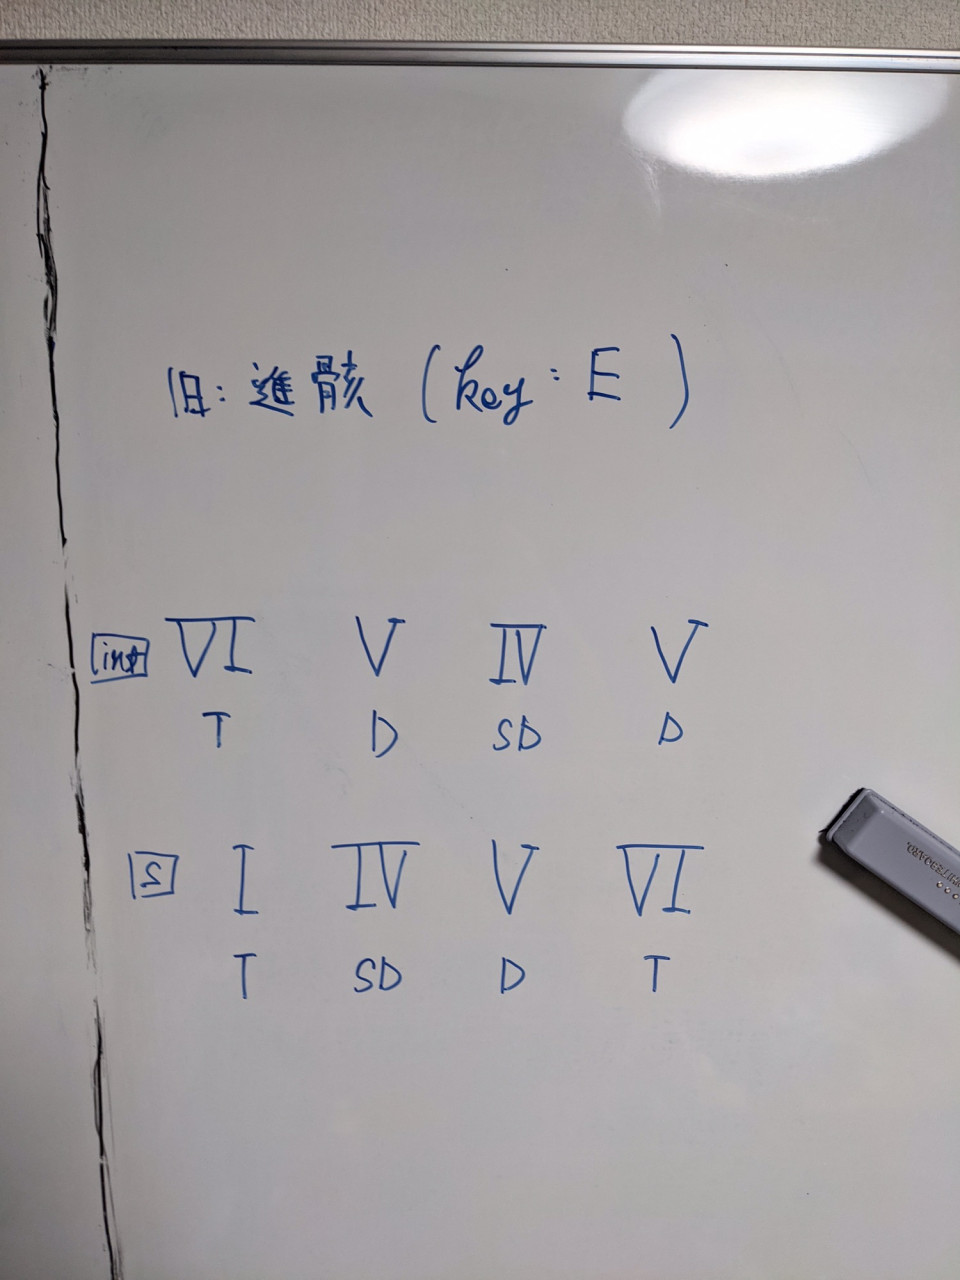 旧: 進骸 (key: E)
int VI V IV V
T D SD D
S I IV V VI
T SD D T
WHITEBOARD